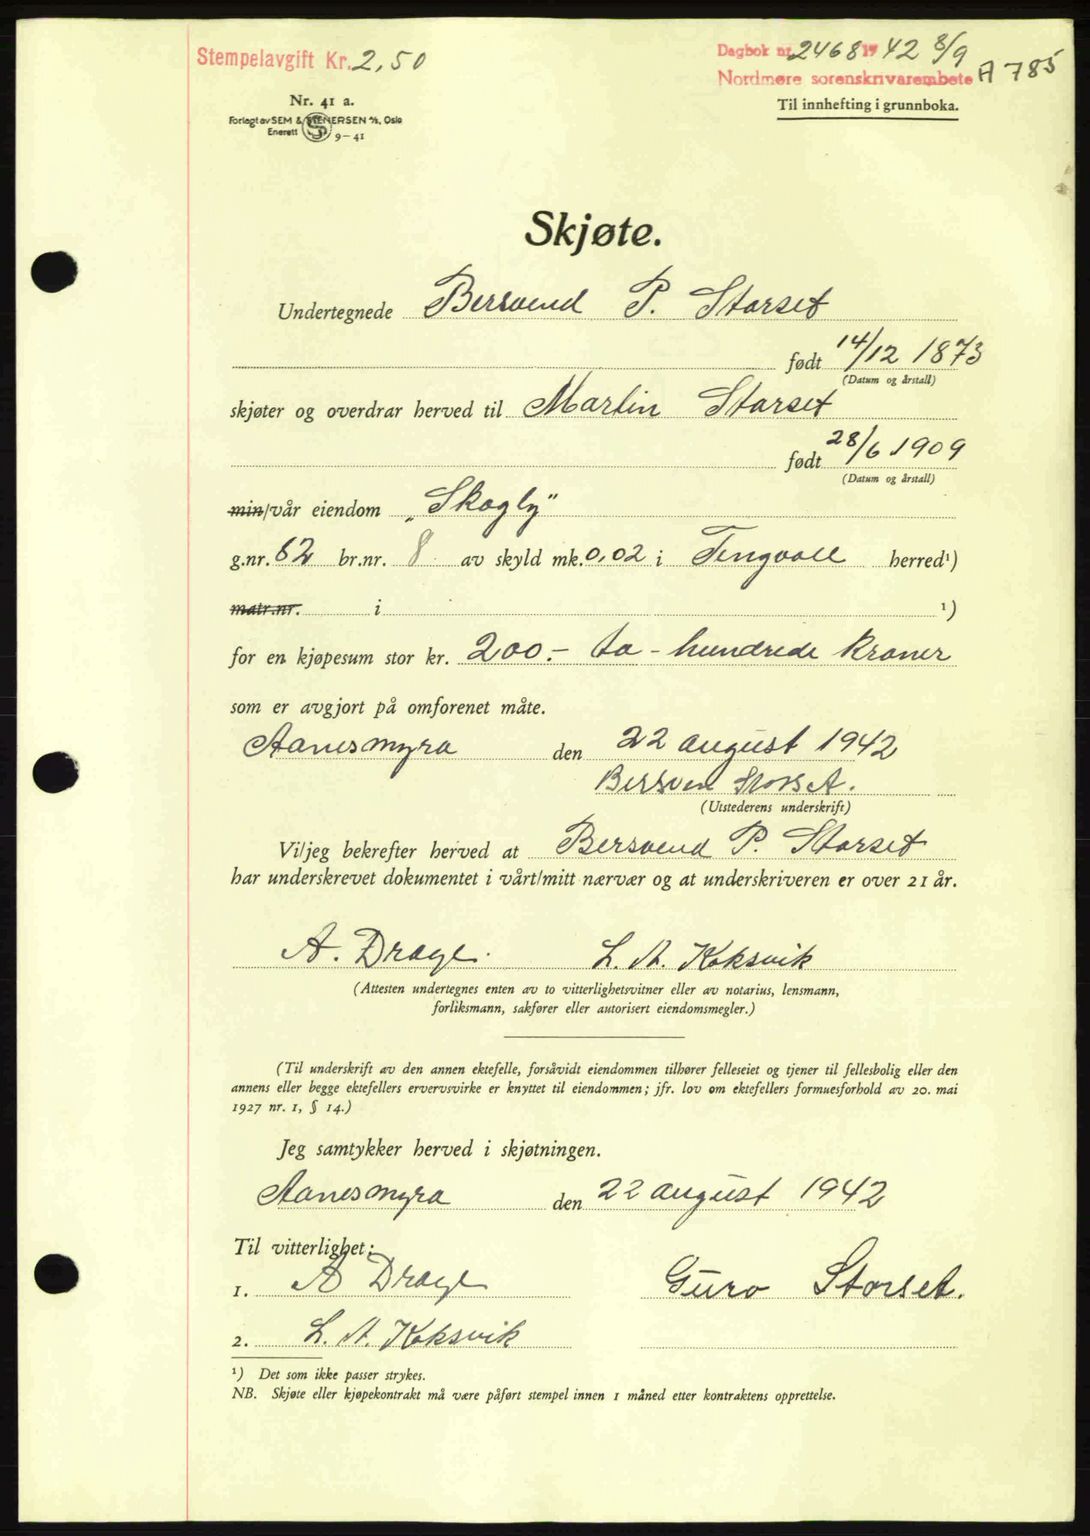 Stempelavgift Kr. 2,50
Dagbok nr. 2468 1942 8/9
Nordmøre sorenskrivarembete A 785
Nr. 41 a.
Forlagt av SEM & STENERSEN A/S, Oslo
Enerett 9-41
Til innhefting i grunnboka.
Skjøte.
Undertegnede Bersvend P. Storset
født 14/12 1873
(Datum og årstall)
skjøter og overdrar herved til Martin Storset
født 28/6 1909
(Datum og årstall)
min/vår eiendom „Skogly"
g.nr. 62 br.nr. 8 av skyld mk. 0,02 i Tingvoll herred¹)
matr.nr. i ¹)
for en kjøpesum stor kr. 200.- to - hundrede kroner
som er avgjort på omforenet måte.
Aanesmyra den 22 august 1942
Bersven Storset.
(Utstederens underskrift)
Vi/jeg bekrefter herved at Bersvend P. Storset
har underskrevet dokumentet i vårt/mitt nærvær og at underskriveren er over 21 år.
A. Drage. L. A. Koksvik
(Attesten undertegnes enten av to vitterlighetsvitner eller av notarius, lensmann,
forliksmann, sakfører eller autorisert eiendomsmegler.)
(Til underskrift av den annen ektefelle, forsåvidt eiendommen tilhører felleseiet og tjener til fellesbolig eller den
annens eller begge ektefellers ervervsvirke er knyttet til eiendommen; jfr. lov om ektefellers formuesforhold av 20. mai
1927 nr. 1, § 14.)
Jeg samtykker herved i skjøtningen.
Aanesmyra den 22 august 1942
Til vitterlighet:
1. A Drage Guro Storset.
2. L. A. Koksvik
¹) Det som ikke passer strykes.
NB. Skjøte eller kjøpekontrakt må være påført stempel innen 1 måned etter kontraktens opprettelse.